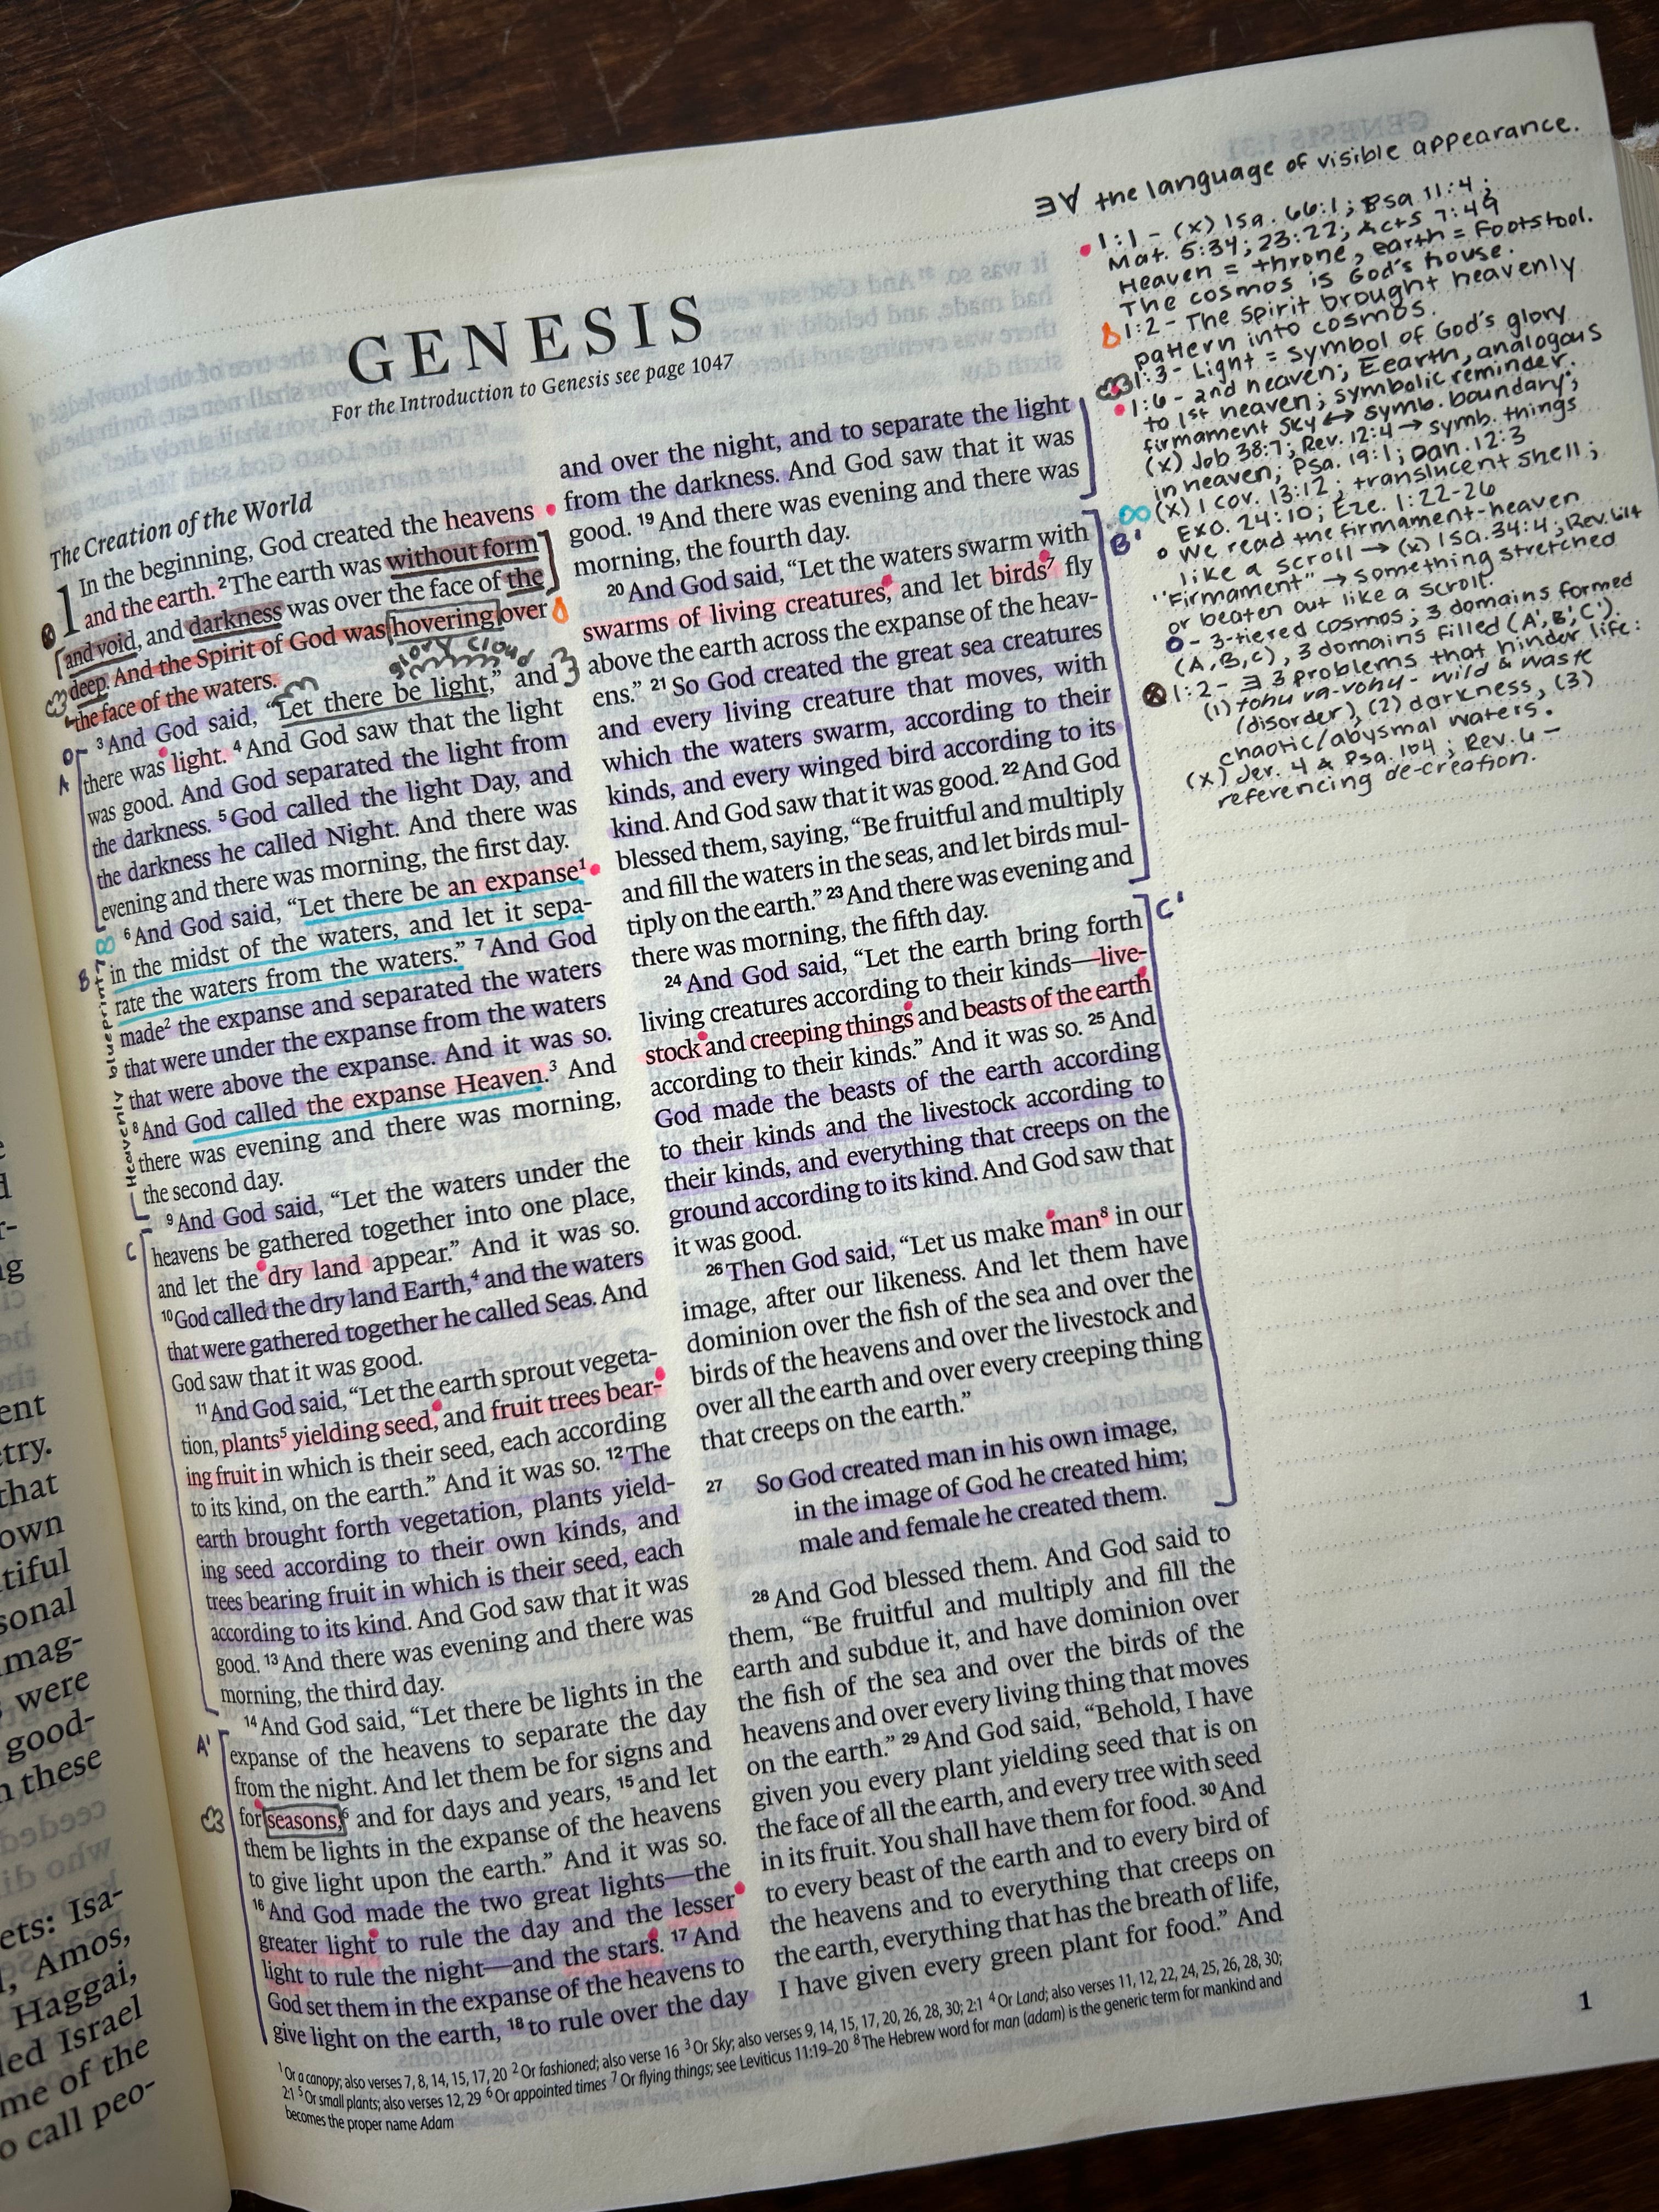 GENESIS
For the Introduction to Genesis see page 1047
The Creation of the World
1 In the beginning, God created the heavens
and the earth. 2 The earth was without form
and void, and darkness was over the face of the
deep. And the Spirit of God was hovering over
the face of the waters.
glory cloud
3 And God said, “Let there be light,” and
there was light. 4 And God saw that the light
was good. And God separated the light from
the darkness. 5 God called the light Day, and
the darkness he called Night. And there was
evening and there was morning, the first day.
6 And God said, “Let there be an expanse1
in the midst of the waters, and let it sepa-
rate the waters from the waters.” 7 And God
made2 the expanse and separated the waters
that were under the expanse from the waters
that were above the expanse. And it was so.
8 And God called the expanse Heaven.3 And
there was evening and there was morning,
the second day.
9 And God said, “Let the waters under the
heavens be gathered together into one place,
and let the dry land appear.” And it was so.
10 God called the dry land Earth,4 and the waters
that were gathered together he called Seas. And
God saw that it was good.
11 And God said, “Let the earth sprout vegeta-
tion, plants5 yielding seed, and fruit trees bear-
ing fruit in which is their seed, each according
to its kind, on the earth.” And it was so. 12 The
earth brought forth vegetation, plants yield-
ing seed according to their own kinds, and
trees bearing fruit in which is their seed, each
according to its kind. And God saw that it was
good. 13 And there was evening and there was
morning, the third day.
14 And God said, “Let there be lights in the
expanse of the heavens to separate the day
from the night. And let them be for signs and
for seasons,6 and for days and years, 15 and let
them be lights in the expanse of the heavens
to give light upon the earth.” And it was so.
16 And God made the two great lights—the
greater light to rule the day and the lesser
light to rule the night—and the stars. 17 And
God set them in the expanse of the heavens to
give light on the earth, 18 to rule over the day
A
B
Heavenly blueprint?
C
A'
and over the night, and to separate the light
from the darkness. And God saw that it was
good. 19 And there was evening and there was
morning, the fourth day.
20 And God said, “Let the waters swarm with
swarms of living creatures, and let birds7 fly
above the earth across the expanse of the heav-
ens.” 21 So God created the great sea creatures
and every living creature that moves, with
which the waters swarm, according to their
kinds, and every winged bird according to its
kind. And God saw that it was good. 22 And God
blessed them, saying, “Be fruitful and multiply
and fill the waters in the seas, and let birds mul-
tiply on the earth.” 23 And there was evening and
there was morning, the fifth day.
24 And God said, “Let the earth bring forth
living creatures according to their kinds—live-
stock and creeping things and beasts of the earth
according to their kinds.” And it was so. 25 And
God made the beasts of the earth according
to their kinds and the livestock according to
their kinds, and everything that creeps on the
ground according to its kind. And God saw that
it was good.
26 Then God said, “Let us make man8 in our
image, after our likeness. And let them have
dominion over the fish of the sea and over the
birds of the heavens and over the livestock and
over all the earth and over every creeping thing
that creeps on the earth.”
27 So God created man in his own image,
in the image of God he created him;
male and female he created them.
28 And God blessed them. And God said to
them, “Be fruitful and multiply and fill the
earth and subdue it, and have dominion over
the fish of the sea and over the birds of the
heavens and over every living thing that moves
on the earth.” 29 And God said, “Behold, I have
given you every plant yielding seed that is on
the face of all the earth, and every tree with seed
in its fruit. You shall have them for food. 30 And
to every beast of the earth and to every bird of
the heavens and to everything that creeps on
the earth, everything that has the breath of life,
I have given every green plant for food.” And
B'
C'
∃∀ the language of visible appearance.
1:1 - (x) Isa. 66:1; Psa 11:4;
Mat. 5:34; 23:22; Acts 7:49
Heaven = throne, earth = footstool.
The cosmos is God's house.
1:2 - The spirit brought heavenly
pattern into cosmos.
1:3 - Light = symbol of God's glory
1:6 - 2nd heaven; Eearth, analogous
to 1st heaven; symbolic reminder.
firmament sky ↔ symb. boundary;
(x) Job 38:7; Rev. 12:4 → symb. things
in heaven; Psa. 19:1; Dan. 12:3
∞ (x) 1 Cor. 13:12; translucent shell;
Exo. 24:10; Eze. 1:22-26
We read the firmament-heaven
like a scroll → (x) Isa. 34:4; Rev. 6:14
"Firmament" → something stretched
or beaten out like a scroll.
- 3-tiered cosmos; 3 domains formed
(A, B, C), 3 domains filled (A', B', C').
1:2 - ∃ 3 problems that hinder life:
(1) tohu va-vohu - wild & waste
(disorder), (2) darkness, (3)
chaotic/abysmal waters.
(x) Jer. 4 & Psa. 104; Rev. 6 -
referencing de-creation.
1 Or a canopy; also verses 7, 8, 14, 15, 17, 20 2 Or fashioned; also verse 16 3 Or Sky; also verses 9, 14, 15, 17, 20, 26, 28, 30; 2:1 4 Or Land; also verses 11, 12, 22, 24, 25, 26, 28, 30;
2:1 5 Or small plants; also verses 12, 29 6 Or appointed times 7 Or flying things; see Leviticus 11:19–20 8 The Hebrew word for man (adam) is the generic term for mankind and
becomes the proper name Adam
1
ent
etry.
that
own
tiful
sonal
mag-
were
good-
these
ets: Isa-
, Amos,
Haggai,
led Israel
me of the
o call peo-